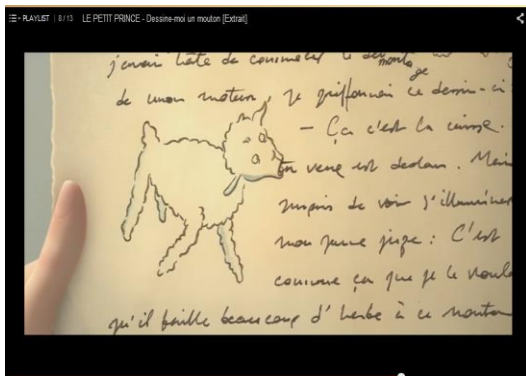 PLAYLIST | 8/13 LE PETIT PRINCE - Dessine-moi un mouton [Extrait]
j'avais hâte de commencer le démontage
de mon moteur, je griffonnai ce dessin-ci
- Ça c'est la caisse.
veux est dedans. Mais
surpris de voir s'illuminer
mon jeune juge : C'est
comme ça que je le voulais
qu'il faille beaucoup d'herbe à ce mouton